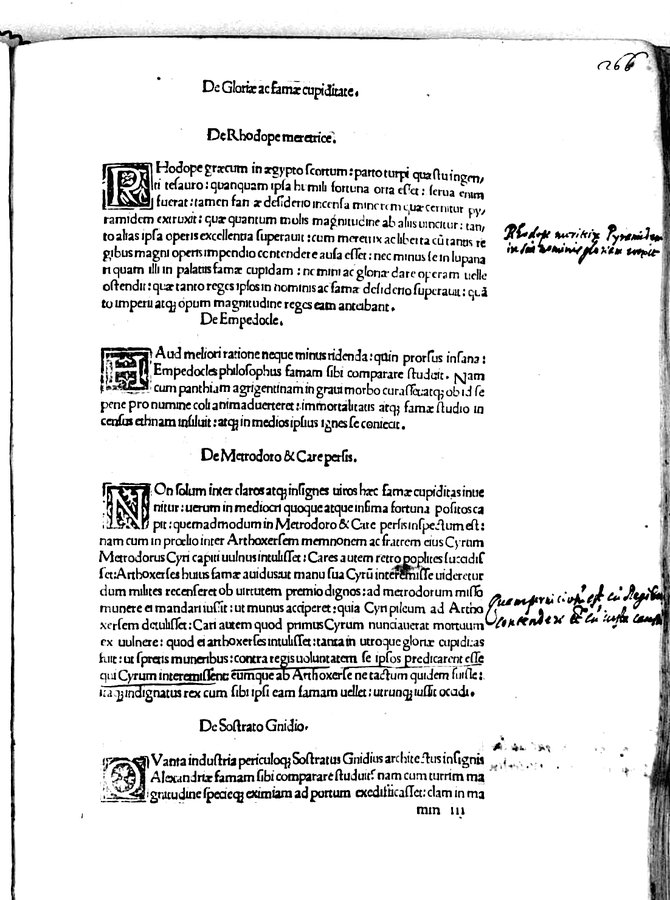 266
De Gloriæ ac famæ cupiditate.
De Rhodope meretrice.
RHodope græcum in ægypto scortum: parto turpi quæstu ingen,
ti tesauro: quanquam ipsa humili fortuna orta esset: serua enim
fuerat: tamen famæ desiderio incensa minorem quæ cernitur py,
ramidem extruxit: quæ quantum molis magnitudine ab aliis uincitur: tan,
to alias ipsa operis excellentia superauit: cum meretrix ac liberta cū tantis re
gibus magni operis impendio contendere ausa esset: nec minus se in lupana
ri quam illi in palatiis famæ cupidam: nemini ac gloriæ dare operam uelle
ostendit: quæ tanto reges ipsos in nominis ac famæ desiderio superauit: quā
to imperii atq; opum magnitudine reges eam anteibant.
Rhodope meritrix Pyramidem
De Empedocle.
HAud meliori ratione neque minus ridenda: quin prorsus insana:
Empedocles philosophus famam sibi comparare studuit. Nam
cum panthiam agrigentinam in graui morbo curasset: atq; ob id se
pene pro numine coli animaduerteret: immortalitatis atq; famæ studio in
census ethnam insiluit: atq; in medios ipsius ignes se coniecit.
De Metrodoro & Care persis.
NOn solum inter claros atq; insignes uiros hæc famæ cupiditas inue
nitur: uerum in mediocri quoque atque infima fortuna positos ca
pit: quemadmodum in Metrodoro & Care persis inspectum est:
nam cum in prœlio inter Arthoxersem memnonem ac fratrem eius Cyrum
Metrodorus Cyri capiti uulnus intulisset: Cares autem retro poplites succidis
set: Arthoxerses huius famæ auidus: ut manu sua Cyrū interemisse uideretur
dum milites recenseret ob uirtutem premio dignos: ad metrodorum misso
munere ei mandari iussit: ut munus acciperet: quia Cyri pileum ad Artho
xersem detulisset: Cari autem quod primus Cyrum nunciauerat mortuum
ex uulnere: quod ei arthoxerses intulisset: tanta in utroque gloriæ cupiditas
fuit: ut spretis muneribus: contra regis uoluntatem se ipsos predicarent esse
qui Cyrum interemissent: eumque ab Arthoxerse ne tactum quidem fuisse:
itaq; indignatus rex cum sibi ipsi eam famam uellet: utrunq; iussit occidi.
De Sostrato Gnidio.
QVanta industria periculoq; Sostratus Gnidius architectus insignis
Alexandriæ famam sibi comparare studuit: nam cum turrim ma
gnitudine specieq; eximiam ad portum exedificasset: clam in ma
mm iii